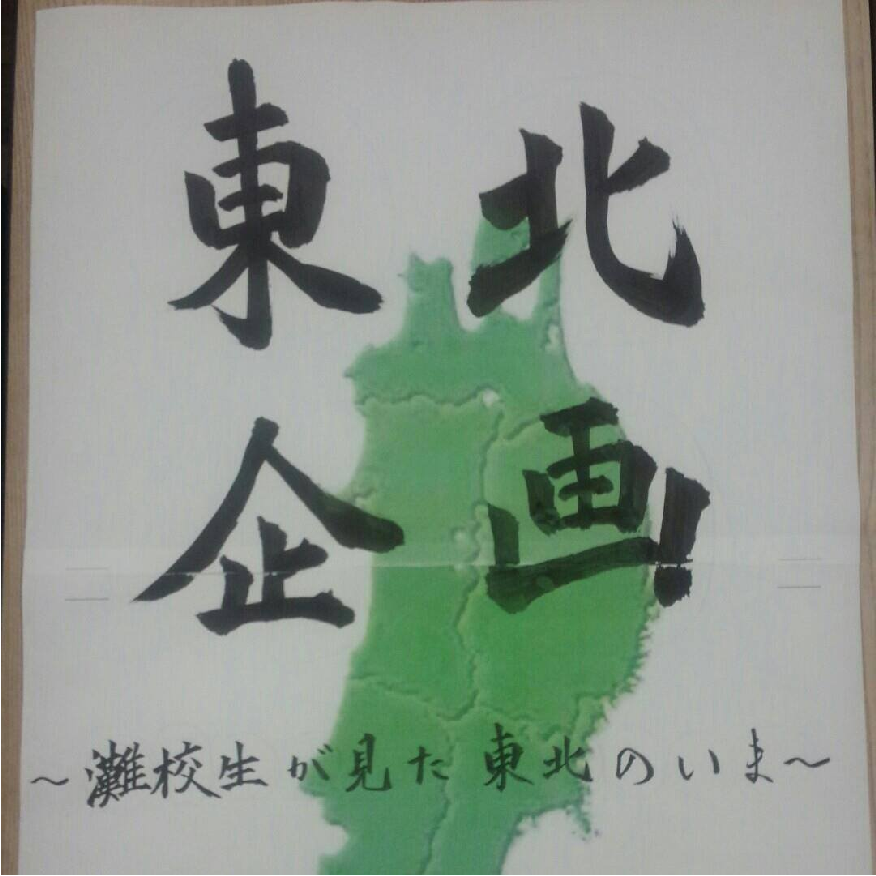 東北
企画
～灘校生が見た東北のいま～